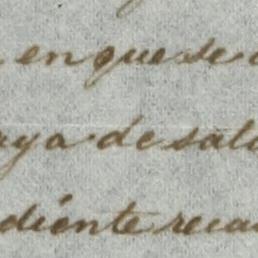 en que se
aya de sala
diente reca